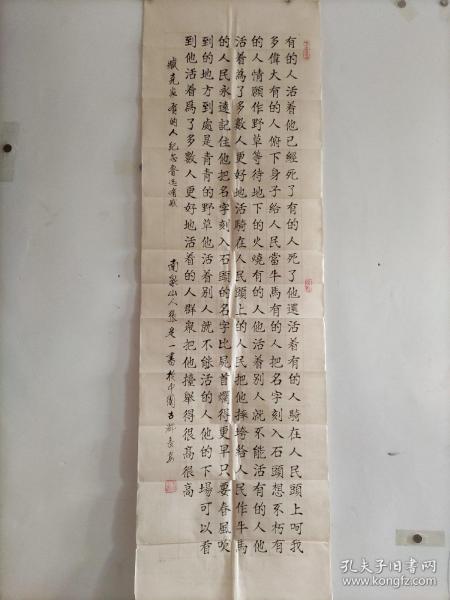 有的人活着他已經死了有的人死了他還活着有的人騎在人民頭上呵我
多偉大有的人俯下身子給人民當牛馬有的人把名字刻入石頭想不朽有
的人情願作野草等待地下的火燒有的人他活着別人就不能活有的人他
活着爲了多數人更好地活騎在人民頭上的人民把他摔垮給人民作牛馬
的人民永遠記住他把名字刻入石頭的名字比屍首爛得更早只要春風吹
到的地方到處是青青的野草他活着別人就不能活的人他的下場可以看
到他活着爲了多數人更好地活着的人群衆把他擡舉得很高很高
臧克家有的人紀念魯迅有感
山人張一書於中國古都長安
孔夫子旧书网